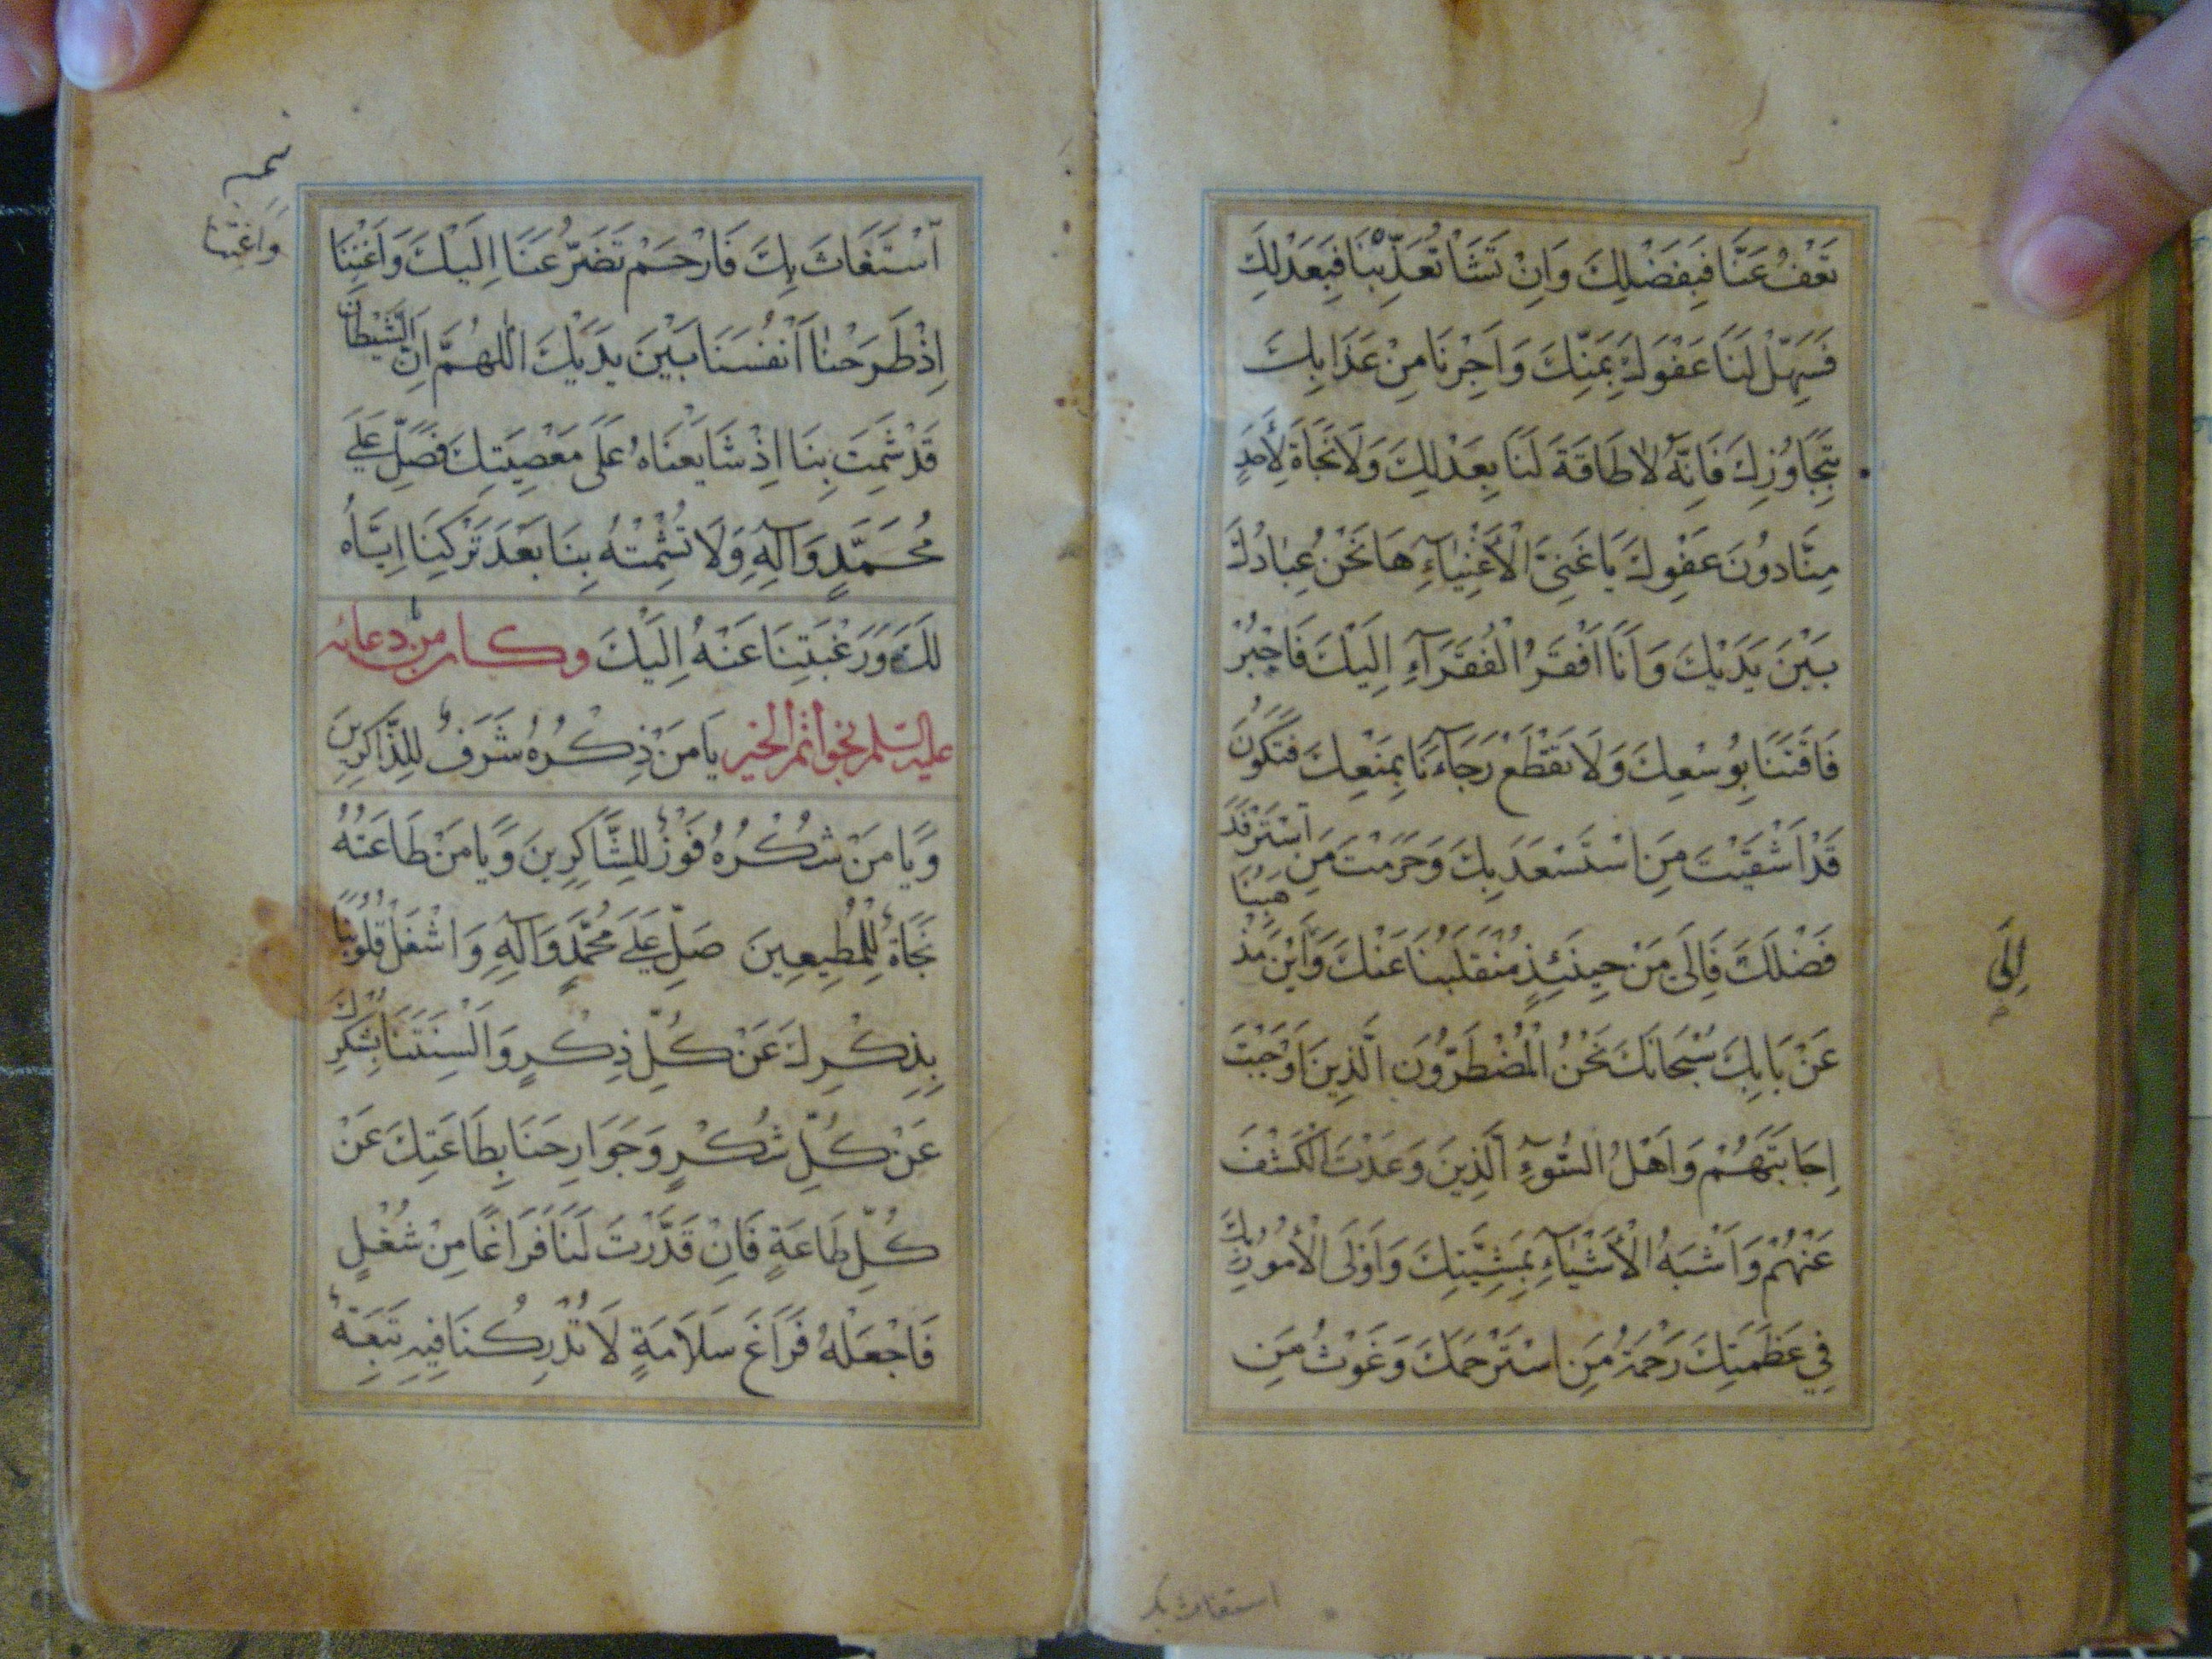 تَعْفُ عَنَّا فَبِفَضْلِكَ وَاِنْ تَشَأْ تُعَذِّبْنَا فَبِعَدْلِكَ
فَسَهِّلْ لَنَا عَفْوَكَ بِمَنِّكَ وَاَجِرْنَا مِنْ عَذَابِكَ
بِتَجَاوُزِكَ فَاِنَّهُ لَا طَاقَةَ لَنَا بِعَدْلِكَ وَلَا نَجَاةَ لِأَحَدٍ
مِنَّا دُونَ عَفْوِكَ يَا غَنِيَّ الْأَغْنِيَآءِ هَا نَحْنُ عِبَادُكَ
بَيْنَ يَدَيْكَ وَاَنَا اَفْقَرُ الْفُقَرَآءِ اِلَيْكَ فَاجْبُرْ
فَاقَتَنَا بِوُسْعِكَ وَلَا تَقْطَعْ رَجَآءَنَا بِمَنْعِكَ فَتَكُونَ
قَدْ اَشْقَيْتَ مَنِ اسْتَسْعَدَ بِكَ وَحَرَمْتَ مَنِ اسْتَرْفَدَ
فَضْلَكَ فَاِلَى مَنْ حِينَئِذٍ مُنْقَلَبُنَا عَنْكَ وَاَيْنَ مَذْهَبُنَا
عَنْ بَابِكَ سُبْحَانَكَ نَحْنُ الْمُضْطَرُّونَ الَّذِينَ اَوْجَبْتَ
اِجَابَتَهُمْ وَاَهْلُ السُّوءِ الَّذِينَ وَعَدْتَ الْكَشْفَ
عَنْهُمْ وَاَشْبَهُ الْأَشْيَآءِ بِمَشِيَّتِكَ وَاَوْلَى الْأُمُورِ بِكَ
فِي عَظَمَتِكَ رَحْمَةُ مَنِ اسْتَرْحَمَكَ وَغَوْثُ مَنِ
اِلَى
استغاث بك
اسْتَغَاثَ بِكَ فَارْحَمْ تَضَرُّعَنَا اِلَيْكَ وَاَغِثْنَا
اِذْ طَرَحْنَا اَنْفُسَنَا بَيْنَ يَدَيْكَ اَللّٰهُمَّ اِنَّ الشَّيْطَانَ
قَدْ شَمِتَ بِنَا اِذْ شَايَعْنَاهُ عَلَى مَعْصِيَتِكَ فَصَلِّ عَلَى
مُحَمَّدٍ وَآلِهِ وَلَا تُشْمِتْهُ بِنَا بَعْدَ تَرْكِنَا اِيَّاهُ
لَكَ وَرَغْبَتِنَا عَنْهُ اِلَيْكَ وكان من دعائه
عليه السلم بخواتم الخير يَا مَنْ ذِكْرُهُ شَرَفٌ لِلذَّاكِرِينَ
وَيَا مَنْ شُكْرُهُ فَوْزٌ لِلشَّاكِرِينَ وَيَا مَنْ طَاعَتُهُ
نَجَاةٌ لِلْمُطِيعِينَ صَلِّ عَلَى مُحَمَّدٍ وَآلِهِ وَاشْغَلْ قُلُوبَنَا
بِذِكْرِكَ عَنْ كُلِّ ذِكْرٍ وَاَلْسِنَتَنَا بِشُكْرِكَ
عَنْ كُلِّ شُكْرٍ وَجَوَارِحَنَا بِطَاعَتِكَ عَنْ
كُلِّ طَاعَةٍ فَاِنْ قَدَّرْتَ لَنَا فَرَاغًا مِنْ شُغْلٍ
فَاجْعَلْهُ فَرَاغَ سَلَامَةٍ لَا تُدْرِكُنَا فِيهِ تَبِعَةٌ